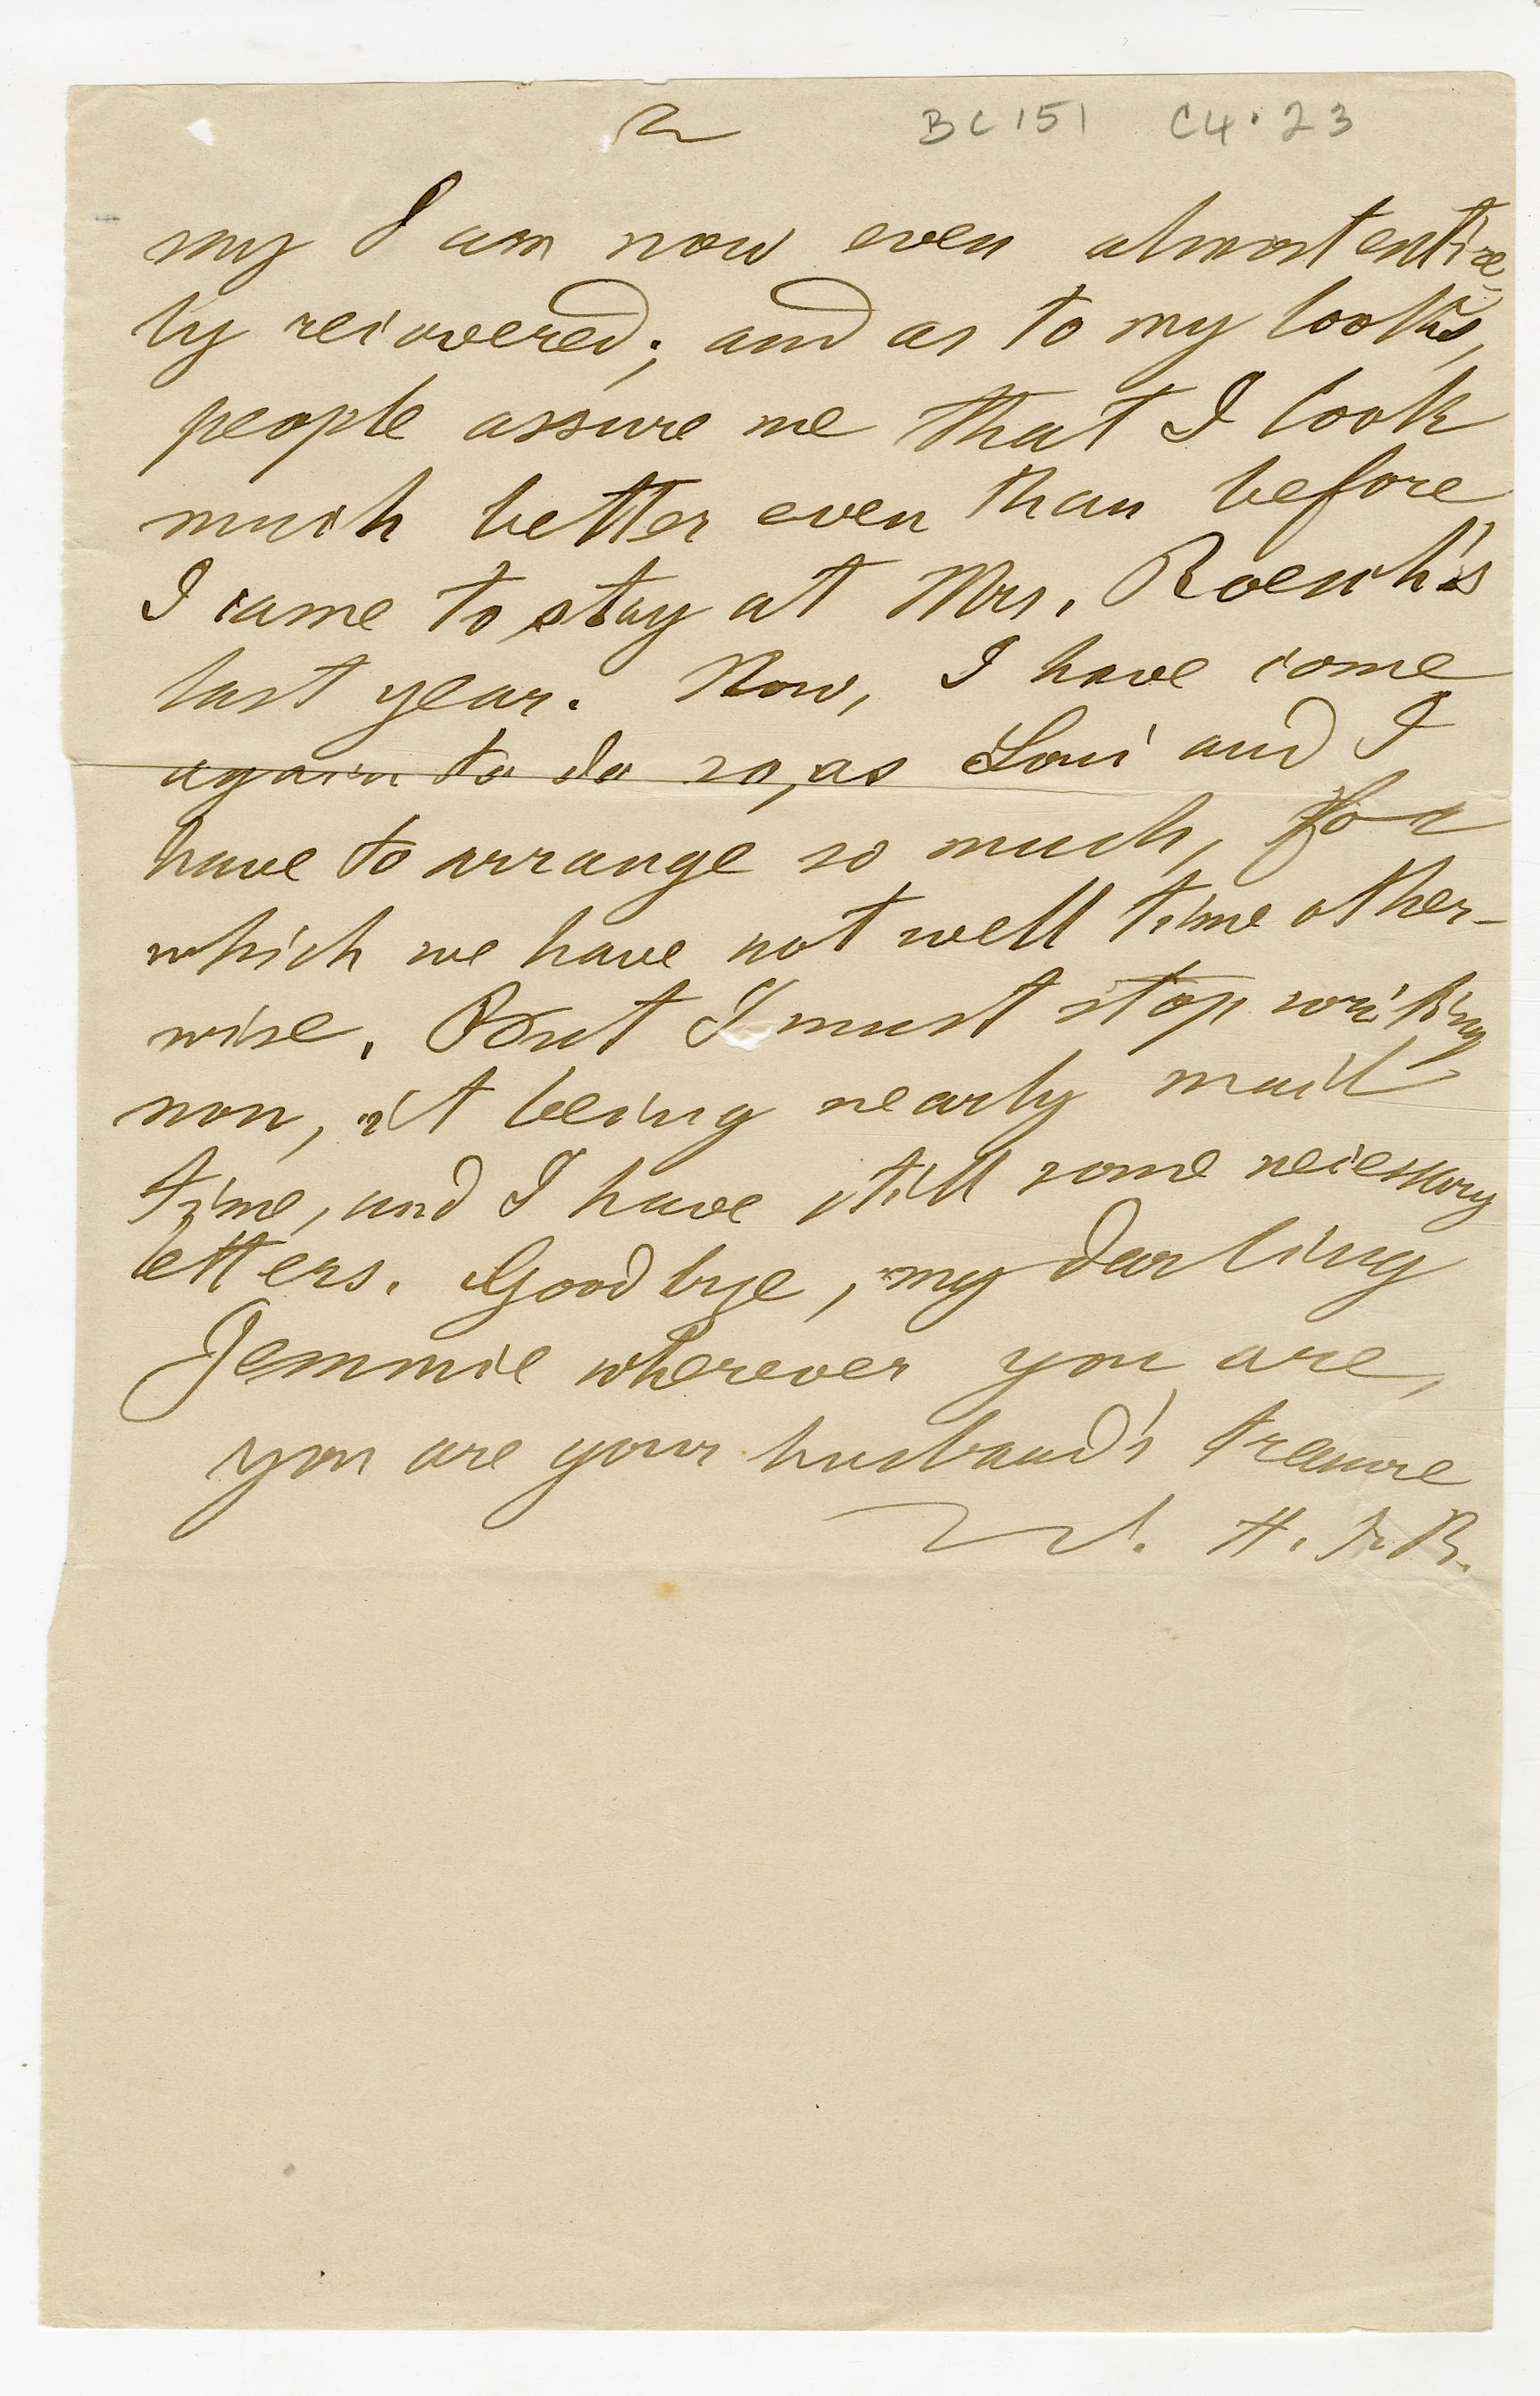 2 BC 151 C4.23
my I am now even almost entire-
ly recovered; and as to my looks,
people assure me that I look
much better even than before
I came to stay at Mrs. Roesch's
last year. Now, I have come
again to do so, as Loui and I
have to arrange so much, for
which we have not well time other-
wise. But I must stop writing
now, it being nearly mail
time, and I have still some necessary
letters. Good bye, my darling
Jemmie wherever you are,
you are your husband's treasure
W. H. I. B.